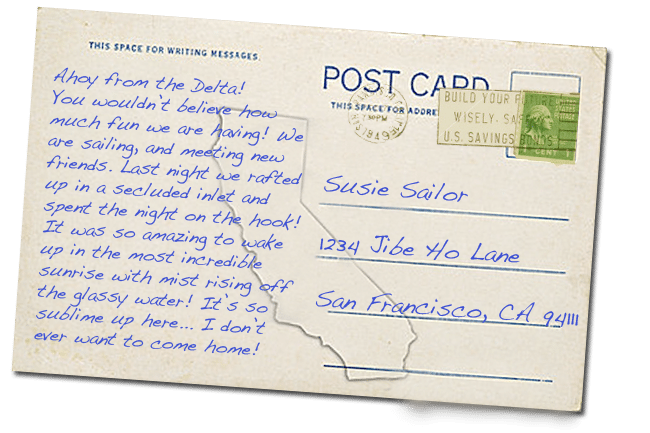 THIS SPACE FOR WRITING MESSAGES.
Ahoy from the Delta!
You wouldn't believe how
much fun we are having! We
are sailing, and meeting new
friends. Last night we rafted
up in a secluded inlet and
spent the night on the hook!
It was so amazing to wake
up in the most incredible
sunrise with mist rising off
the glassy water! It's so
sublime up here... I don't
ever want to come home!
POST CARD
THIS SPACE FOR
1949
BUILD YOUR
WISELY
U.S. SAVINGS
CENT
Susie Sailor
1234 Jibe Ho Lane
San Francisco, CA 94111